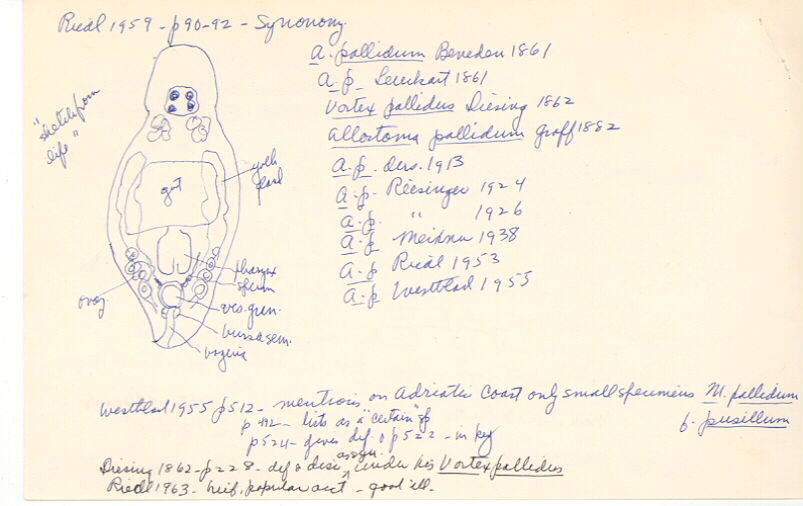 Riedl 1959 - p90-92 - Synonomy
A. pallidum Beneden 1861
A. p. Leuckart 1861
Vortex pallidus Diesing 1862
Allostoma pallidum Graff 1882
A. p. Ders. 1913
A. p. Reisinger 1924
A. p. " 1926
A. p. Meixner 1938
A. p. Riedl 1953
A. p. Westblad 1955
"sketch from
life"
gut
yolk
gland
pharynx
sperm
ves. gran.
bursa sem.
vagina
ovag.
Westblad 1955 p512 - mentions on Adriatic Coast only small specimens M. pallidum
f. pusillum
p 492 - lists as a "certain" sp
p 524 - gives def. & p 522 - in key
Diesing 1862 - p228 - def & disc, as syn. under his Vortex pallidus
Riedl 1963 - brief, popular acct - good ill.